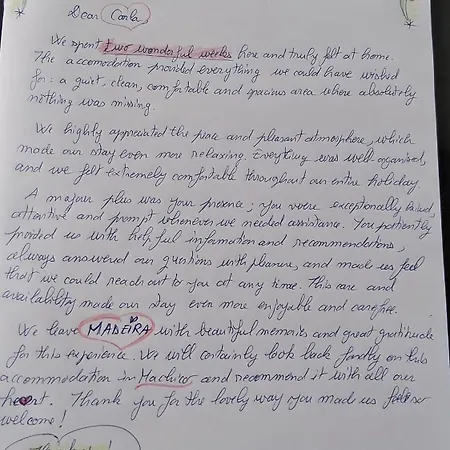 Dear Carla
We spent two wonderful weeks here and truly felt at home.
The accomodation provided everything we could have wished
for: a quiet, clean, comfortable and spacious area where absolutely
nothing was missing.
We highly appreciated the peace and pleasant atmosphere, which
made our stay even more relaxing. Everything was well-organised,
and we felt extremely comfortable throughout our entire holiday
A majour plus was your presence; you were exceptionally kind,
attentive and prompt whenever we needed assistance. You patiently
provided us with helpful information and recommendations,
always answered our questions with pleasure, and made us feel
that we could reach out to you at any time. This care and
availability made our stay even more enjoyable and carefree.
We leave MADEIRA with beautiful memories and great gratitude
for this experience. We will certainly look back fondly on this
accommodation in Machico and recommend it with all our
heart. Thank you for the lovely way you made us feel so
welcome!